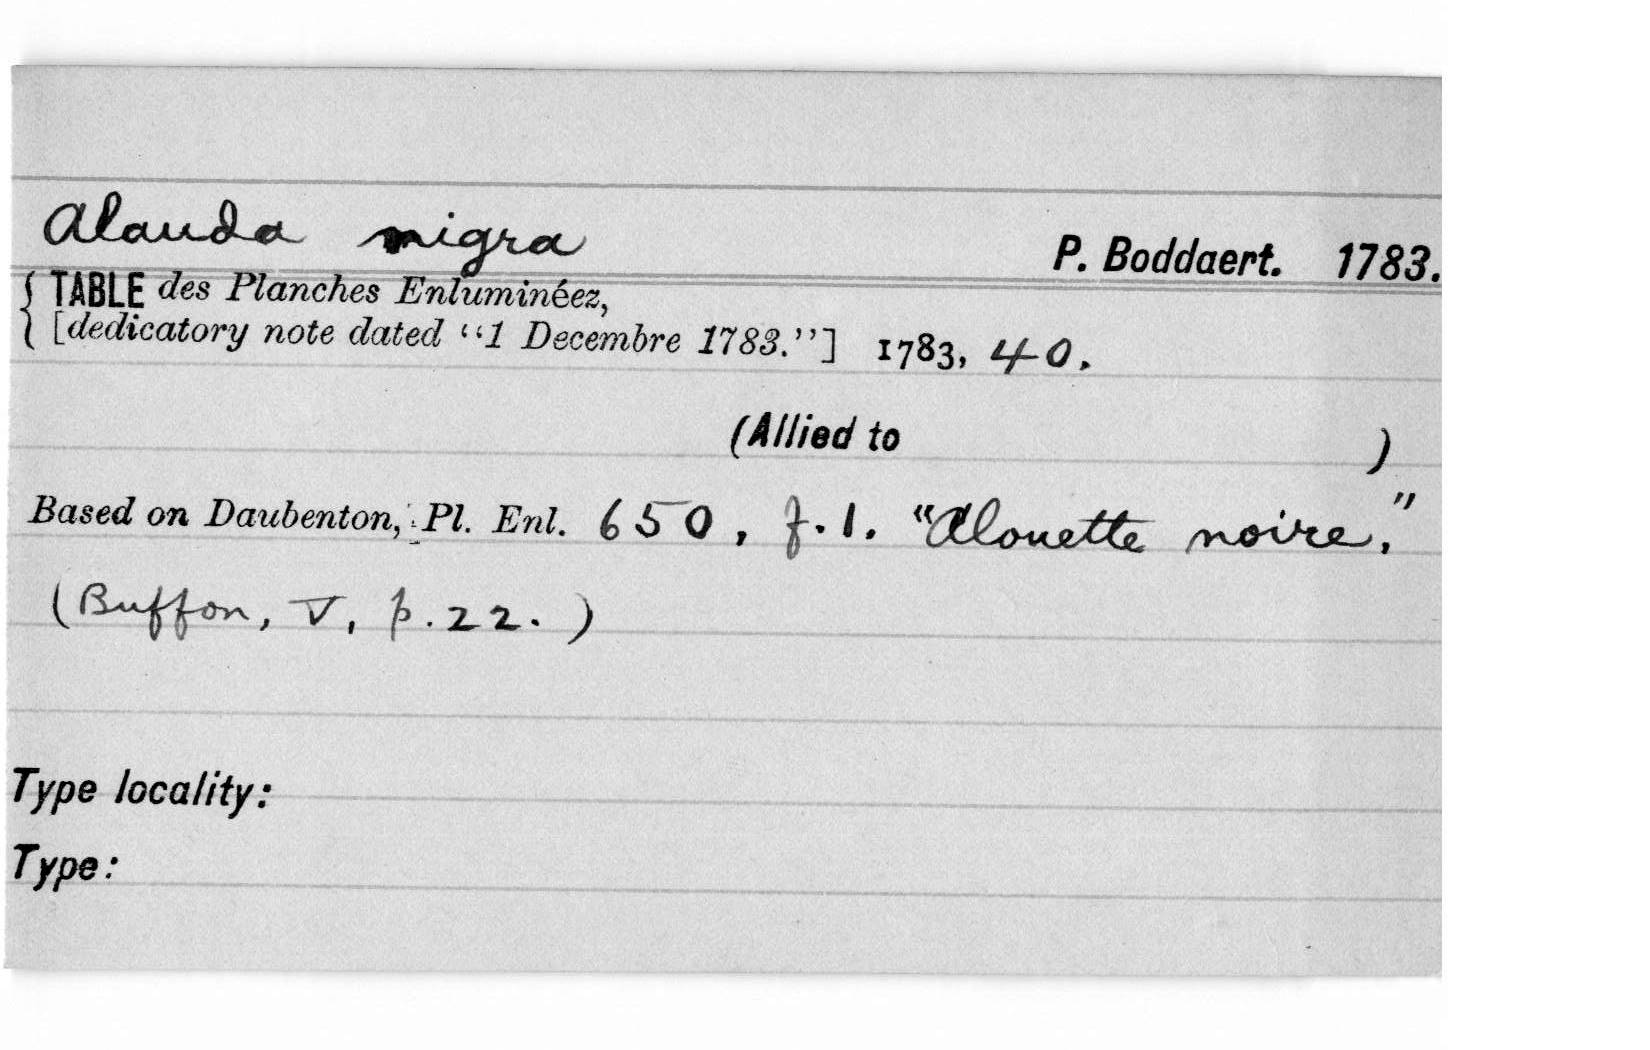 Alauda nigra P. Boddaert. 1783.
{ TABLE des Planches Enluminéez,
{ [dedicatory note dated “1 Decembre 1783.”] 1783, 40.
(Allied to )
Based on Daubenton, Pl. Enl. 650, f.1. “Alouette noire.”
(Buffon, V, p.22.)
Type locality:
Type: